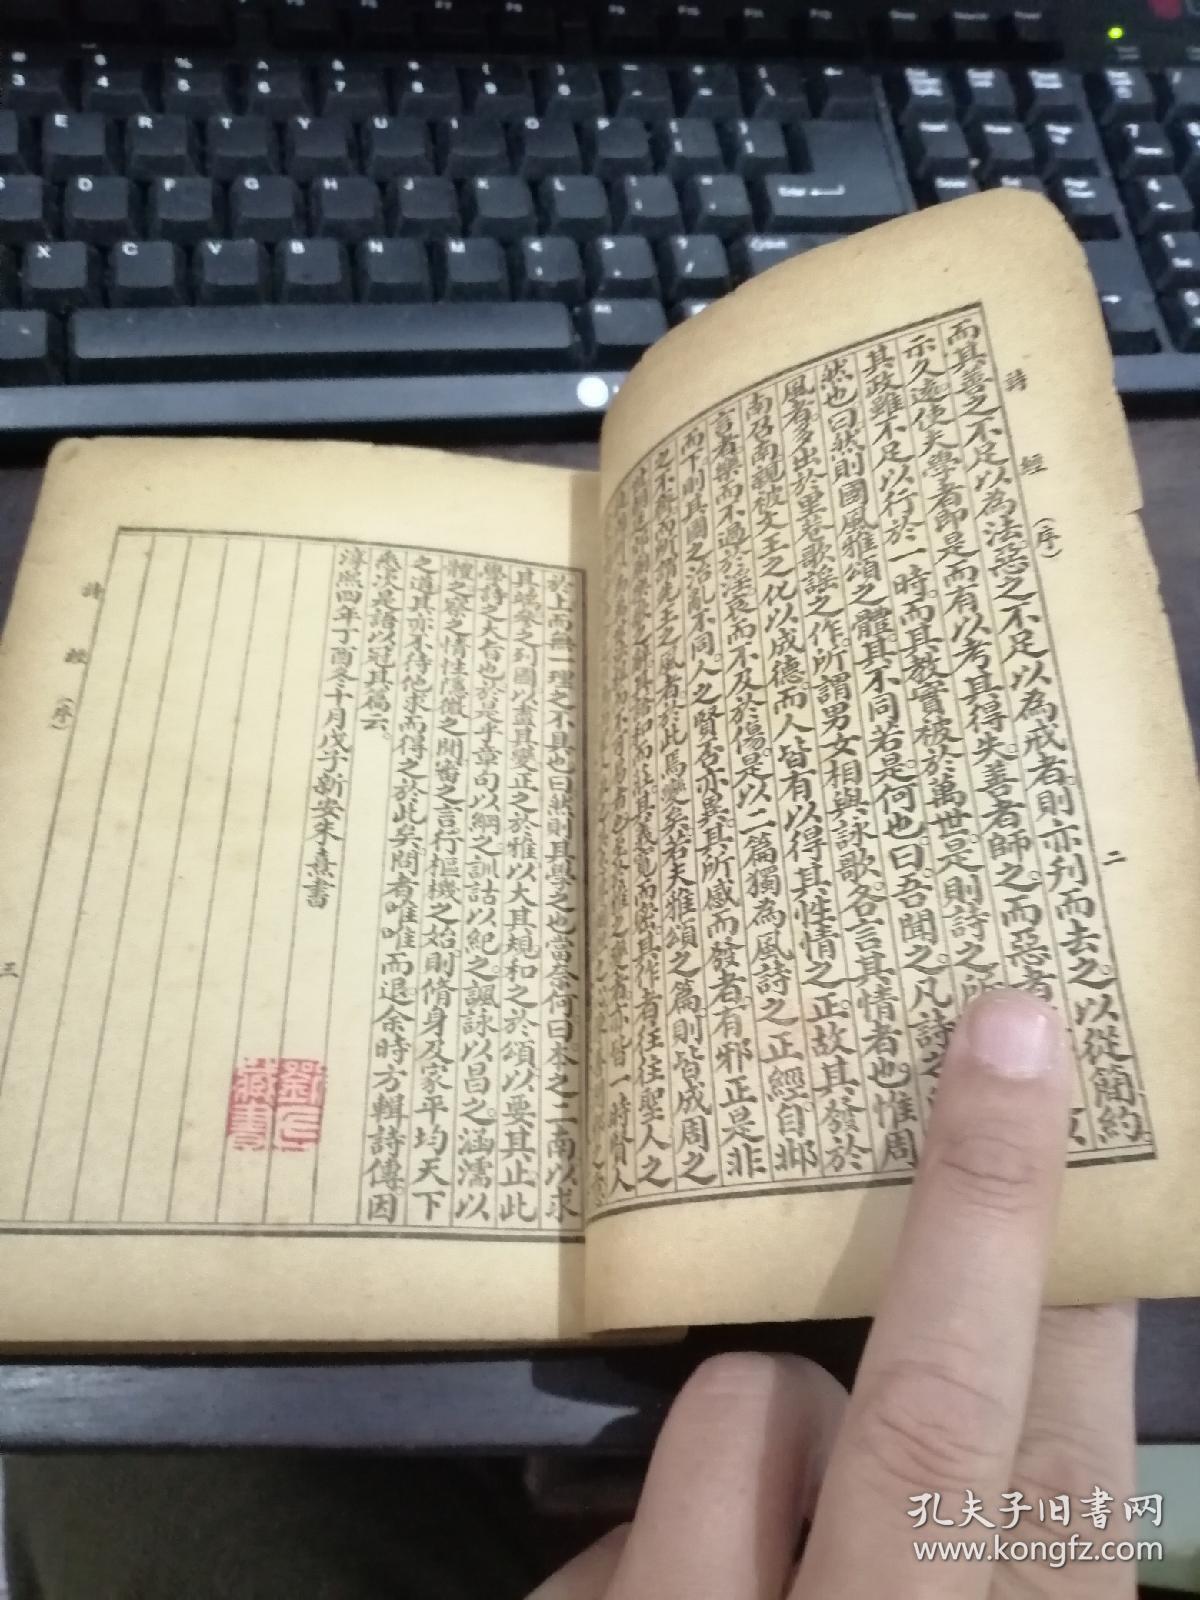 詩經(序)
二
而其善之不足以為法惡之不足以為戒者則亦刊而去之以從簡約
示久遠使夫學者即是而有以考其得失善者師之而惡者
其政雖不足以行於一時而其教實被於萬世是則詩之所
然也曰然則國風雅頌之體其不同若是何也曰吾聞之凡詩之
風者多出於里巷歌謠之作所謂男女相與詠歌各言其情者也惟周
南召南親被文王之化以成德而人皆有以得其性情之正故其發於
言者樂而不過於淫哀而不及於傷是以二篇獨為風詩之正經自邶
而下則其國之治亂不同人之賢否亦異其所感而發者有邪正是非
之不齊而所謂先王之風者於此焉變矣若夫雅頌之篇則皆成周之
其作者往往聖人之
於上而無一理之不具也曰然則其學之也當奈何曰本之二南以求
其端參之列國以盡其變正之於雅以大其規和之於頌以要其止此
學詩之大旨也於是乎章句以綱之訓詁以紀之諷詠以昌之涵濡以
體之察之情性隱微之間審之言行樞機之始則脩身及家平均天下
之道其亦不待他求而得之於此矣問者唯唯而退余時方輯詩傳因
悉次是語以冠其篇云
淳熙四年丁酉冬十月戊子新安朱熹書
劉氏
藏書
詩經(序)
三
孔夫子旧书网
www.kongfz.com